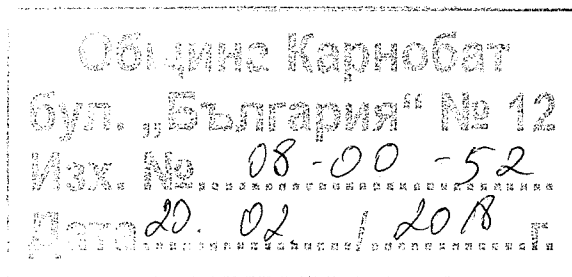 Община Карнобат
бул. „България“ № 12
Изх. № 08-00-52
Дата 20. 02 / 2018 г.